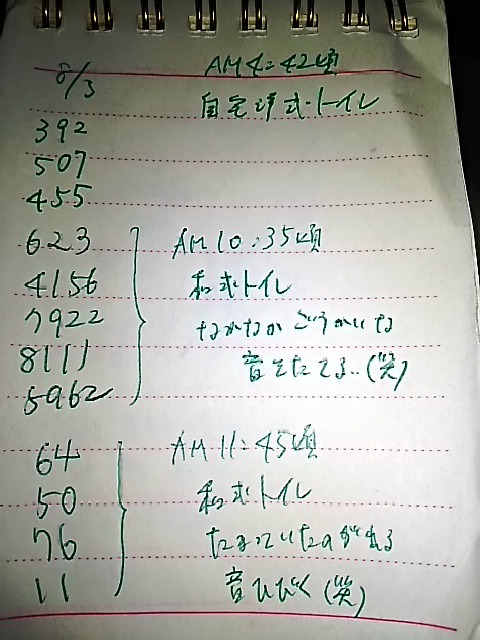 8/3 AM4:42頃
自宅洋式トイレ
392
507
455
623 AM10:35頃
4156 和式トイレ
7922 なかなかごうかいな
8111 音をたてる..(笑)
5962
64 AM11:45頃
50 和式トイレ
76 たまっていたのが出る
11 音ひびく(笑)